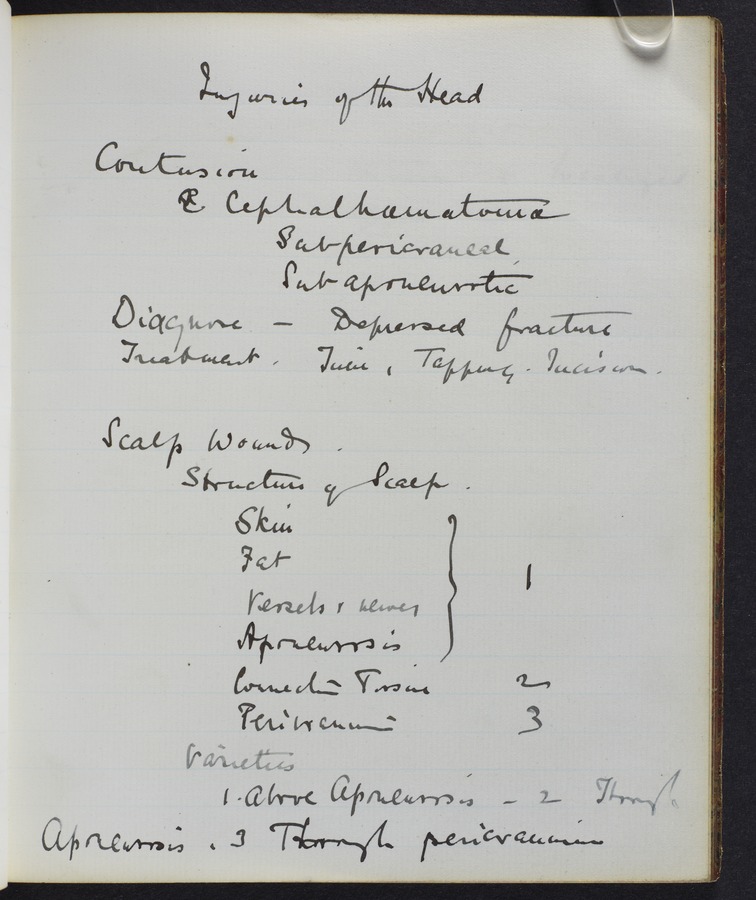 Injuries of the Head
Contusion
Cephalhaematoma
Subpericraneal
Sub aponeurotic
Diagnose – Depressed fracture
Treatment. Time, Tapping. Incision.
Scalp Wounds.
Structure of Scalp.
Skin
Fat
Vessels & nerves
Aponeurosis
1
Connective Tissue 2
Pericranium 3
Varieties
1. Above Aponeurosis – 2 Through
Aponeurosis. 3 Through pericranium